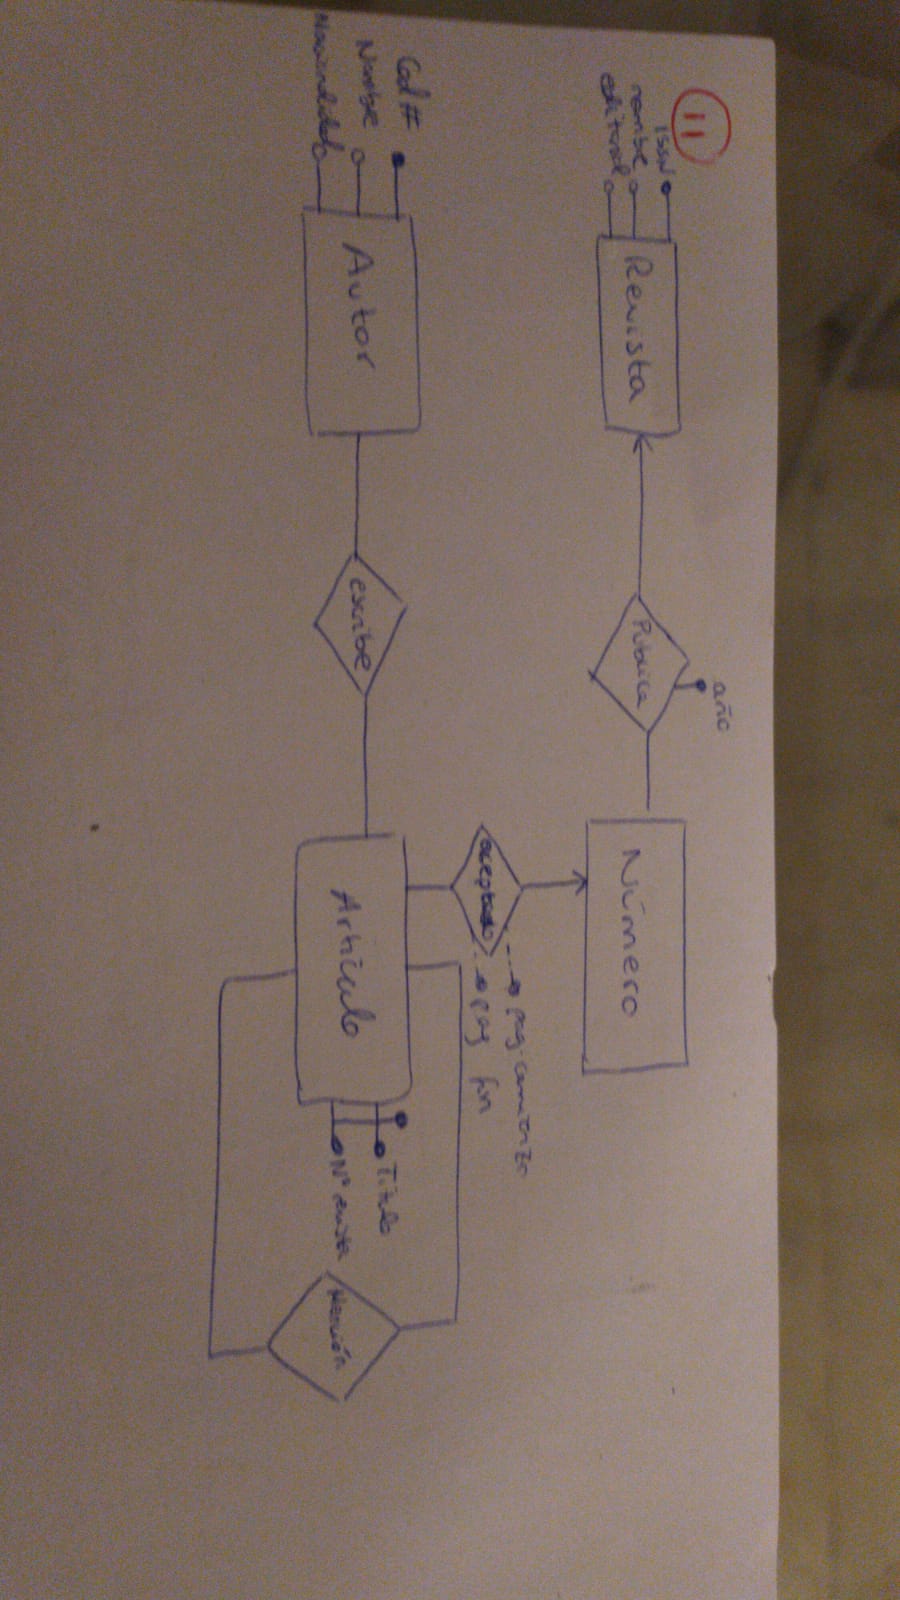 11
año
ISSN
nombre
editorial
Revista
Publica
Número
aceptado
pag. comienzo
pag fin
Cod#
Nombre
Nacionalidad
Autor
escribe
Artículo
Titulo
Nº revista
Mención